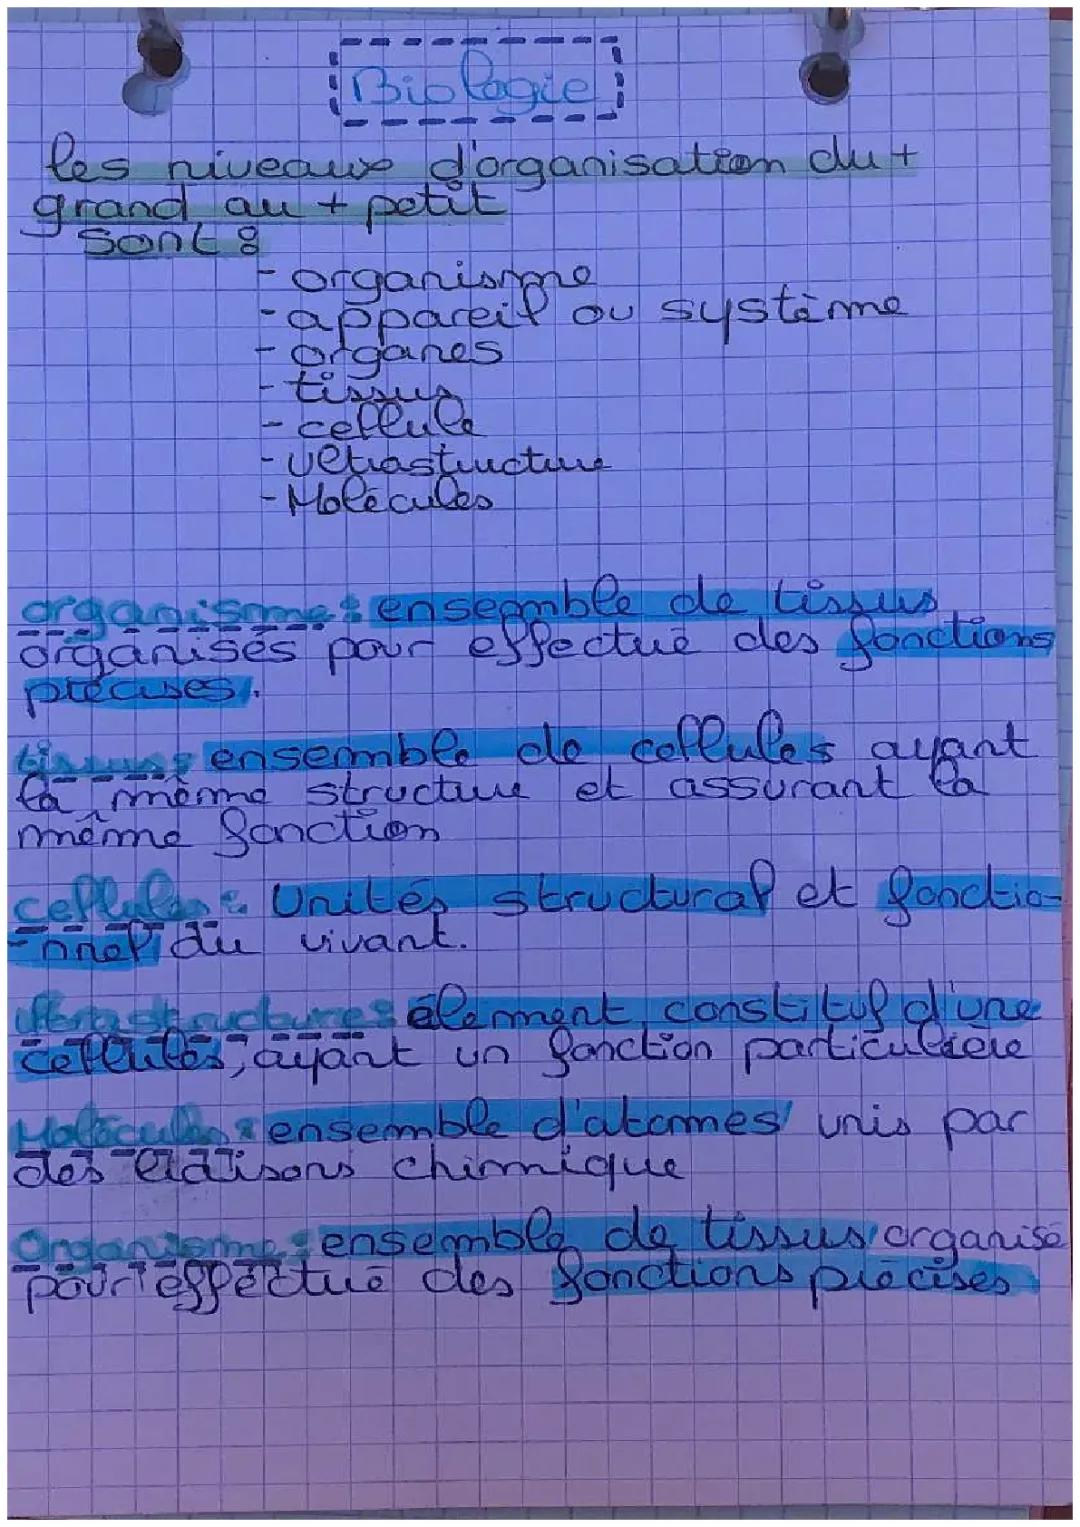 Biologie
les niveaux d'organisation du +
grand au + petit
sont :
- organisme
- appareil ou système
- organes
- tissus
- cellule
- ultrastructure
- Molécules
organisme : ensemble de tissus
organisés pour effectué des fonctions
précises.
tissus : ensemble de cellules ayant
la même structure et assurant la
même fonction
cellules : Unités structural et fonctio-
-nnel du vivant.
ultrastructures : élément constitutif d'une
cellules, ayant un fonction particulière
Molécules : ensemble d'atomes unis par
des liaisons chimique
Organisme : ensemble de tissus organisé
pour effectué des fonctions précises